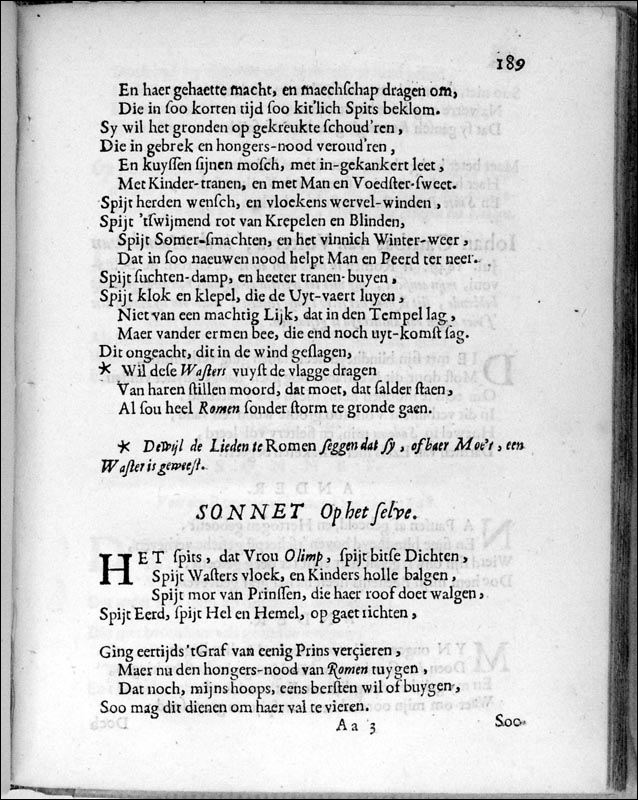 189
En haer gehaette macht, en maechſchap dragen om,
Die in ſoo korten tijd ſoo kit'lich Spits beklom.
Sy wil het gronden op gekreukte ſchoud'ren,
Die in gebrek en hongers-nood veroud'ren,
En kuyſſen ſijnen moſch, met in-gekankert leet,
Met Kinder-tranen, en met Man en Voedſter-ſweet.
Spijt herden wenſch, en vloekens wervel-winden,
Spijt 'tſwijmend rot van Krepelen en Blinden,
Spijt Somer-ſmachten, en het vinnich Winter-weer,
Dat in ſoo naeuwen nood helpt Man en Peerd ter neer.
Spijt ſuchten-damp, en heeter tranen-buyen,
Spijt klok en klepel, die de Uyt-vaert luyen,
Niet van een machtig Lijk, dat in den Tempel lag,
Maer vander ermen bee, die end noch uyt-komſt ſag.
Dit ongeacht, dit in de wind geſlagen,
* Wil deſe Waſters vuyſt de vlagge dragen
Van haren ſtillen moord, dat moet, dat ſalder ſtaen,
Al ſou heel Romen ſonder ſtorm te gronde gaen.
* Dewijl de Lieden te Romen ſeggen dat ſy, of haer Moe'r, een
Waſter is geweeſt.
SONNET Op het ſelve.
HET ſpits, dat Vrou Olimp, ſpijt bitſe Dichten,
Spijt Waſters vloek, en Kinders holle balgen,
Spijt mor van Prinſſen, die haer roof doet walgen,
Spijt Eerd, ſpijt Hel en Hemel, op gaet richten,
Ging eertijds 'tGraf van eenig Prins verçieren,
Maer nu den hongers-nood van Romen tuygen,
Dat noch, mijns hoops, eens berſten wil of buygen,
Soo mag dit dienen om haer val te vieren.
Aa 3
Soo